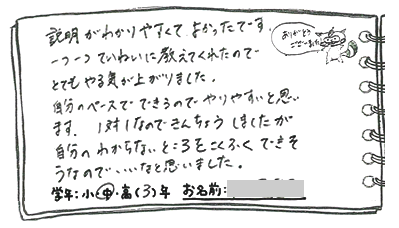 説明がわかりやすくて よかったです。
一つ一つていねいに教えてくれたので
とてもやる気が上がりました。
自分のペースでできるのでやりやすいと思い
ます。 1対1なのできんちょうしましたが
自分のわからないところをこくふくできそ
うなので、いいなと思いました。
ありがとう
ございました
学年:小・中・高(3)年 お名前: